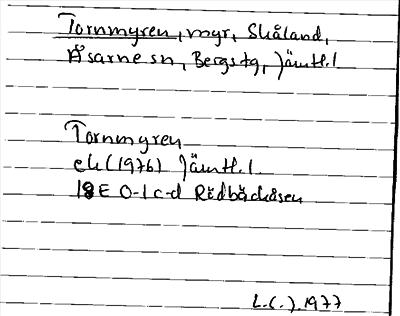 Tornmyren, myr, Skåland,
Åsarne sn, Bergs tg, Jämtl. l
Tornmyren
ek (1976) Jämtl. l.
18E 0-1 c-d Rödbäcksåsen
L.(.).1977